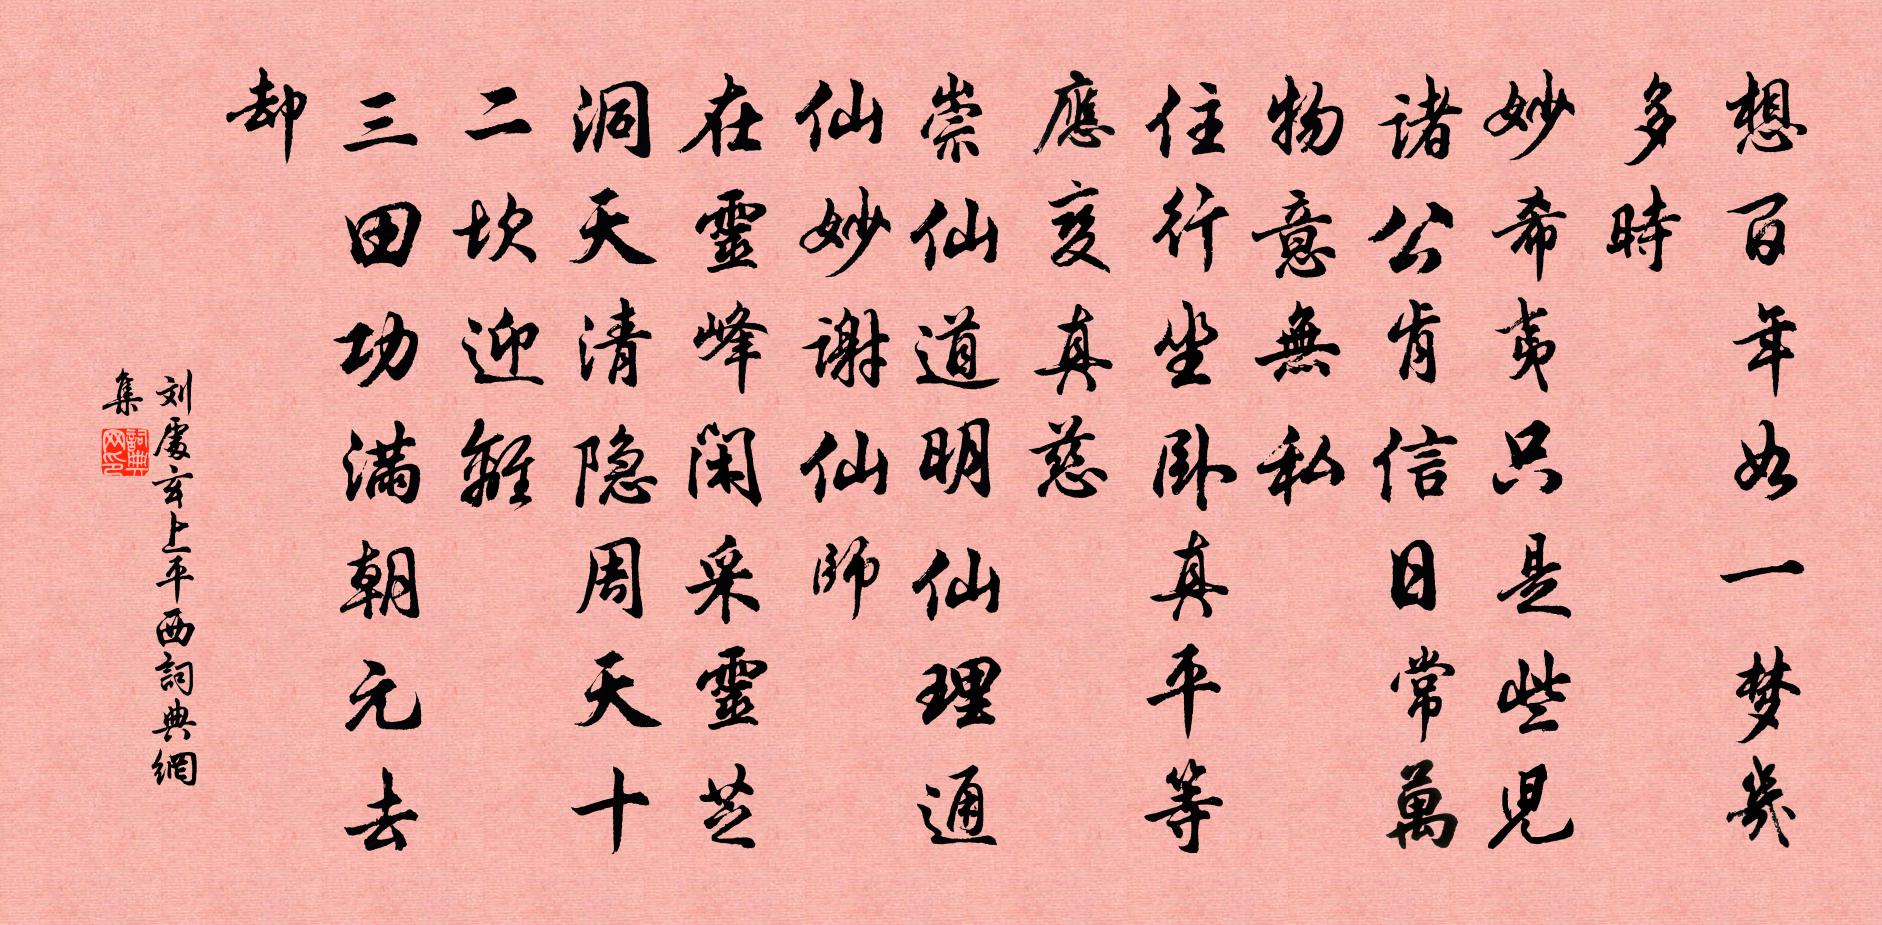 想百年如一梦幾
多時
妙希夷只是些児
诸公肯信日常萬
物意無私
住行坐卧真平等
應变真慈
崇仙道明仙理通
仙妙谢仙師
在靈峰闲采靈芝
洞天清隐周天十
二坎迎離
三田功满朝元去
却
刘處玄上平西詞典網
集
詞典网印